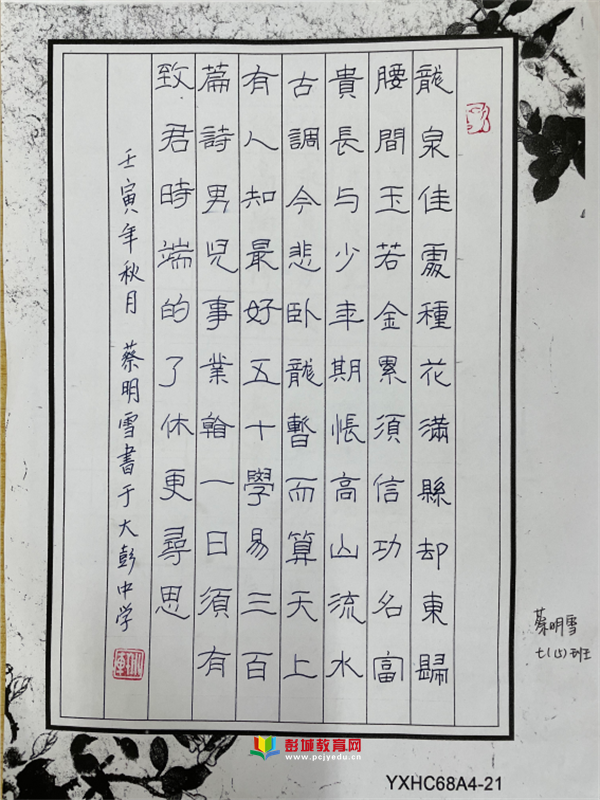 龍泉佳處種花滿縣却東歸
腰間玉若金累須信功名富
貴長与少年期悵高山流水
古調今悲卧龍暫而算天上
有人知最好五十學易三百
篇詩男兒事業看一日須有
致君時端的了休更尋思
壬寅年秋月 蔡明雪書于大彭中学
蔡明雪
七(15)班
彭城教育网
www.pcjyedu.cn
YXHC68A4-21